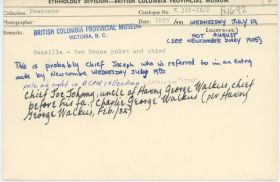 ETHNOLOGY DIVISION—BRITISH COLUMBIA PROVINCIAL MUSEUM
Collection Newcombe Catalogue
PN682
Photographer BRITISH COLUMBIA PROVINCIAL MUSEUM Date 1905 WEDNESDAY JULY 19
VICTORIA, B. C. NOT AUGUST
(SEE NEWCOMBE'S DIARY 1905)
Gwasilla - two house poles and chief
This is probably Chief Joseph who is referred to in an entry
made by Newcombe WEDNESDAY July 19th
pole on right in BCPM collection
Chief Joe Johnny, uncle of Harry George Walkus, chief
before his fa. Charlie George Walkus (per Harry
George Walkus, Feb./82)